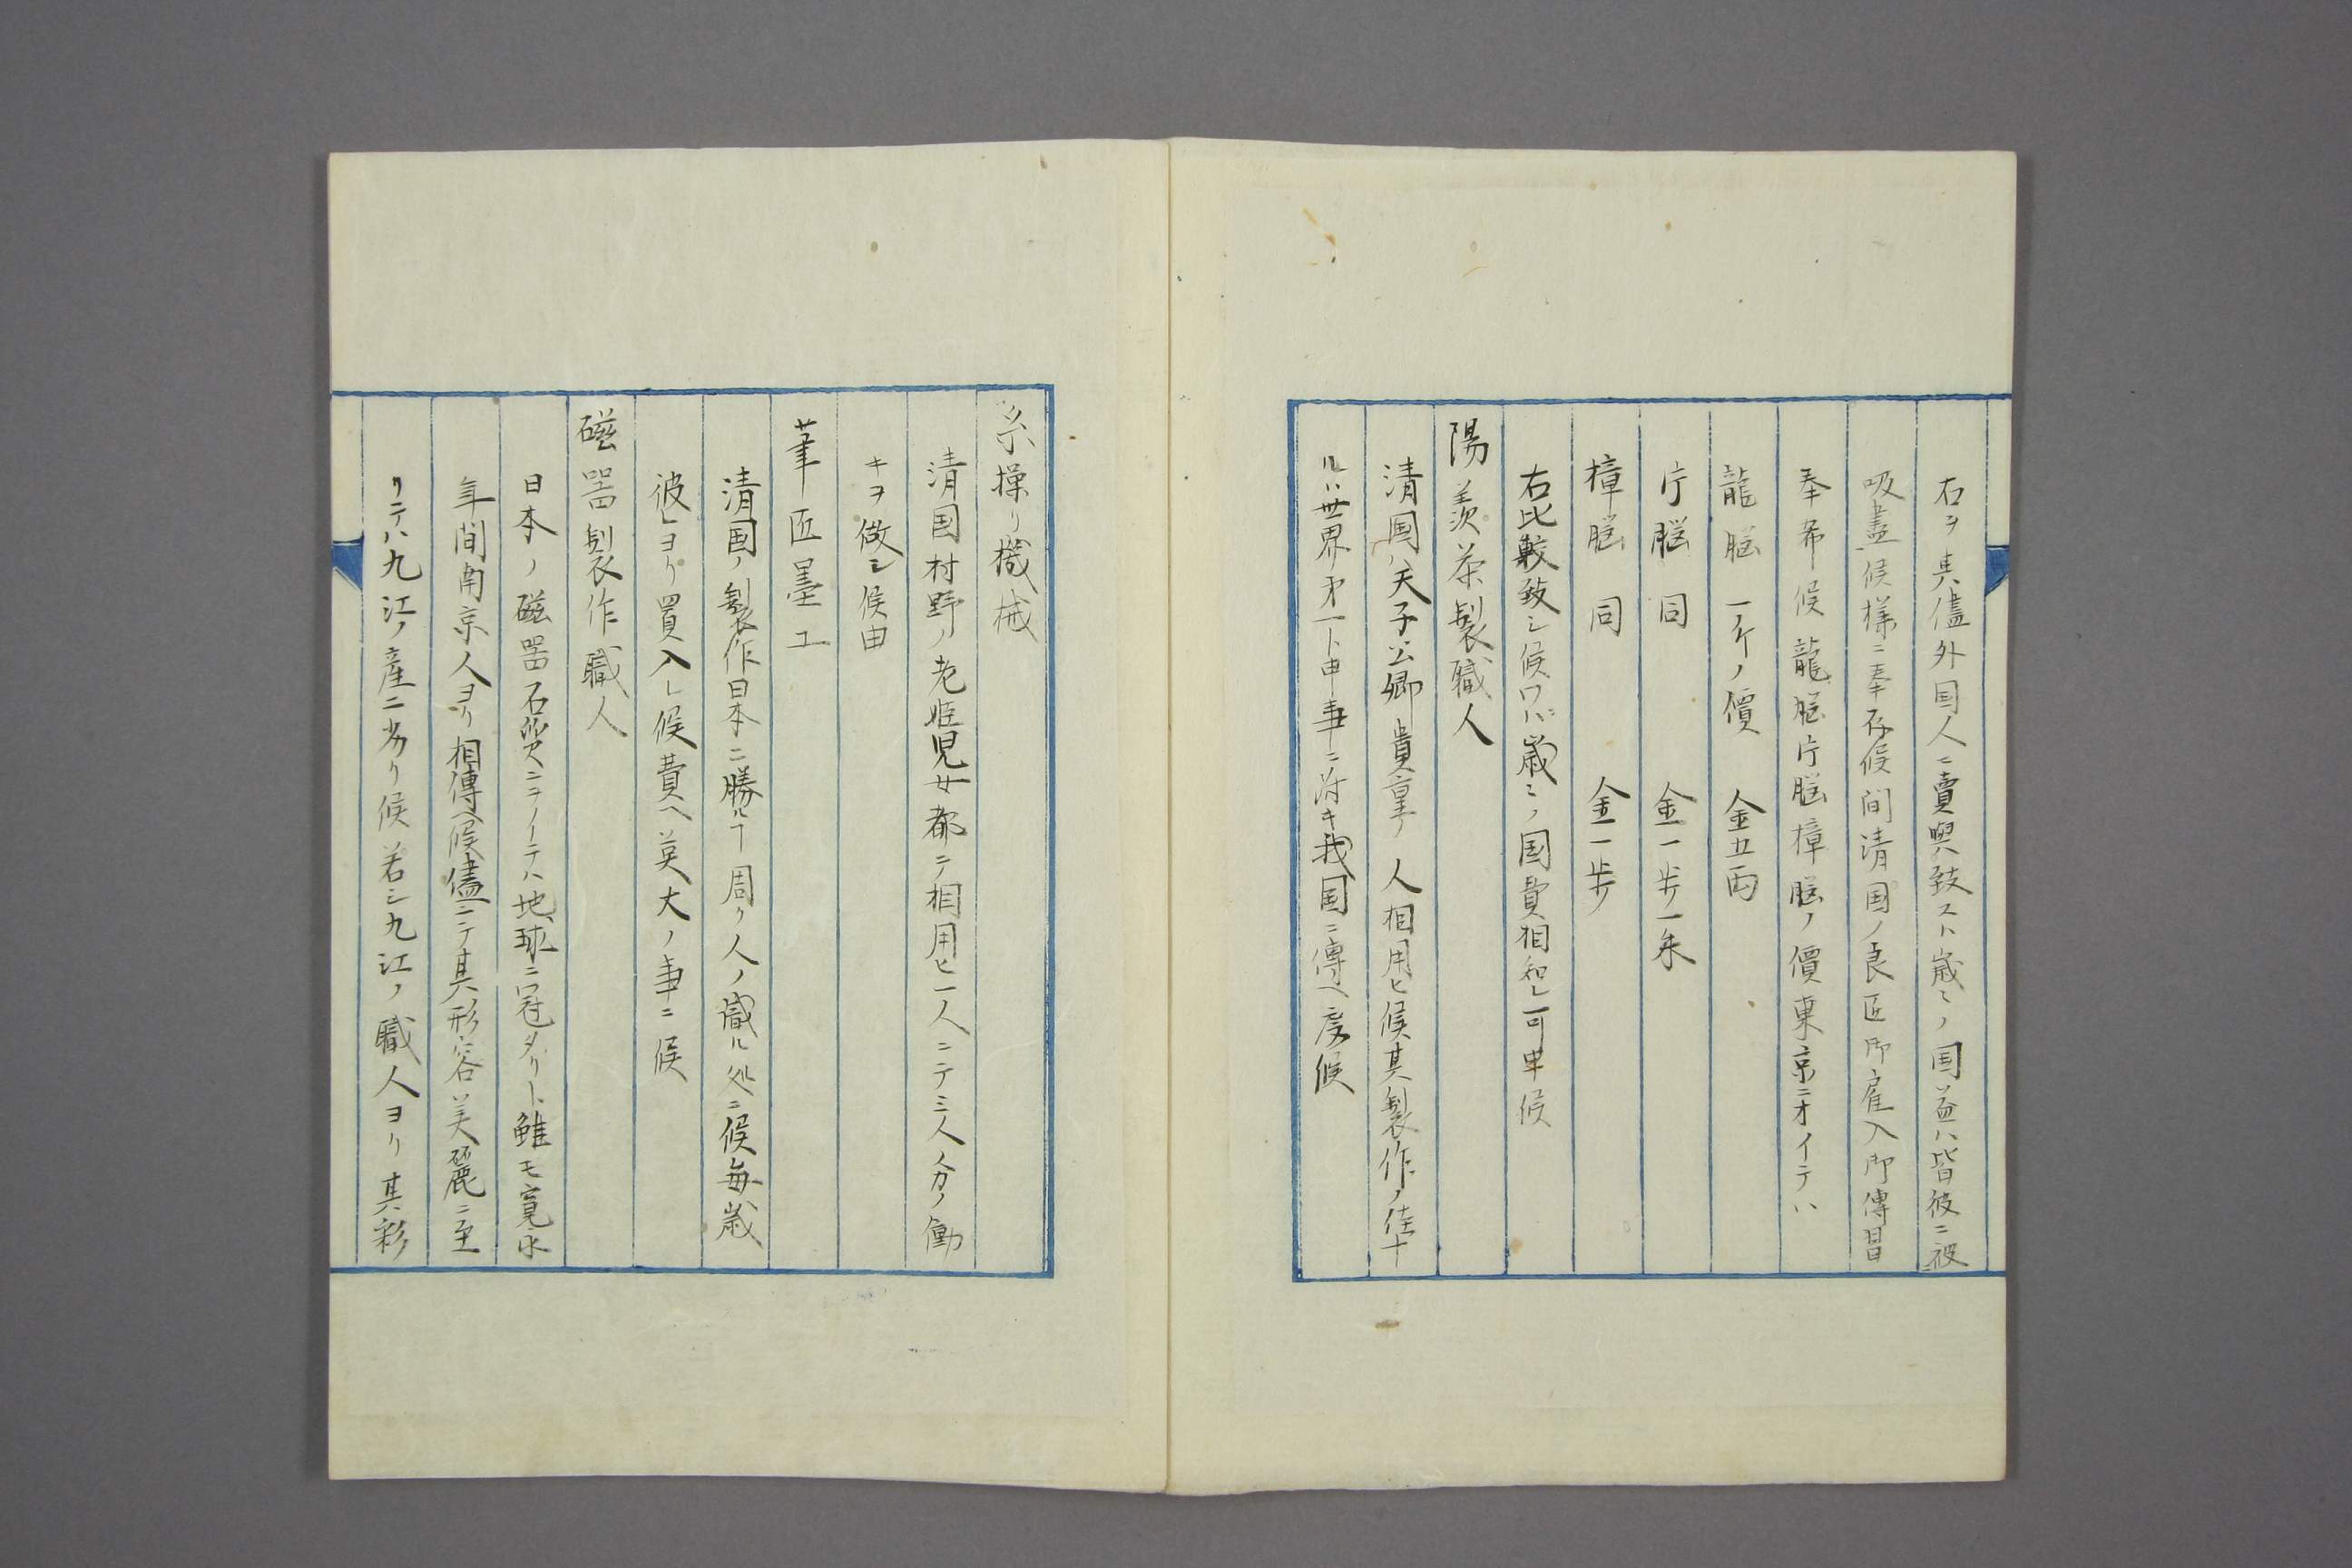 右ヲ其儘外国人ニ賣與致スト歳々ノ国益ハ皆彼ニ被
吸盡候様ニ奉存候間清国ノ良匠御雇入御傳習
奉希候龍脳片脳樟脳ノ價東京ニオイテハ
龍脳 一斤ノ價 金五両
片脳 同 金一歩一朱
樟脳 同 金一歩
右比較致シ候ワバ歳々ノ国費相知レ可申候
陽羨茶製職人
清国ハ天子公卿貴豪ノ人相用ヒ候其製作ノ佳ナ
ルハ世界才一ト申事ニ付キ我国ニ傳ヘ度候
糸操リ機械
清国村野ノ老姫児女都テ相用ヒ一人ニテ三人分ノ働
キヲ做シ候由
筆匠墨工
清国ノ製作日本ニ勝ルヿ周ク人ノ識ル処ニ候毎歳
彼レヨリ買入レ候費ヘ莫大ノ事ニ候
磁器製作職人
日本ノ磁器石質ニヲイテハ地球ニ冠タリト雖モ寛永
年間南京人ヨリ相傳ヘ候儘ニテ其形容美麗ニ至
リテハ九江ノ産ニ劣リ候若シ九江ノ職人ヨリ其彩